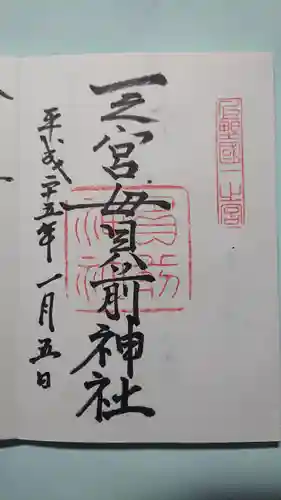 上野國一之宮
一之宮貫前神社
平成二十五年一月五日